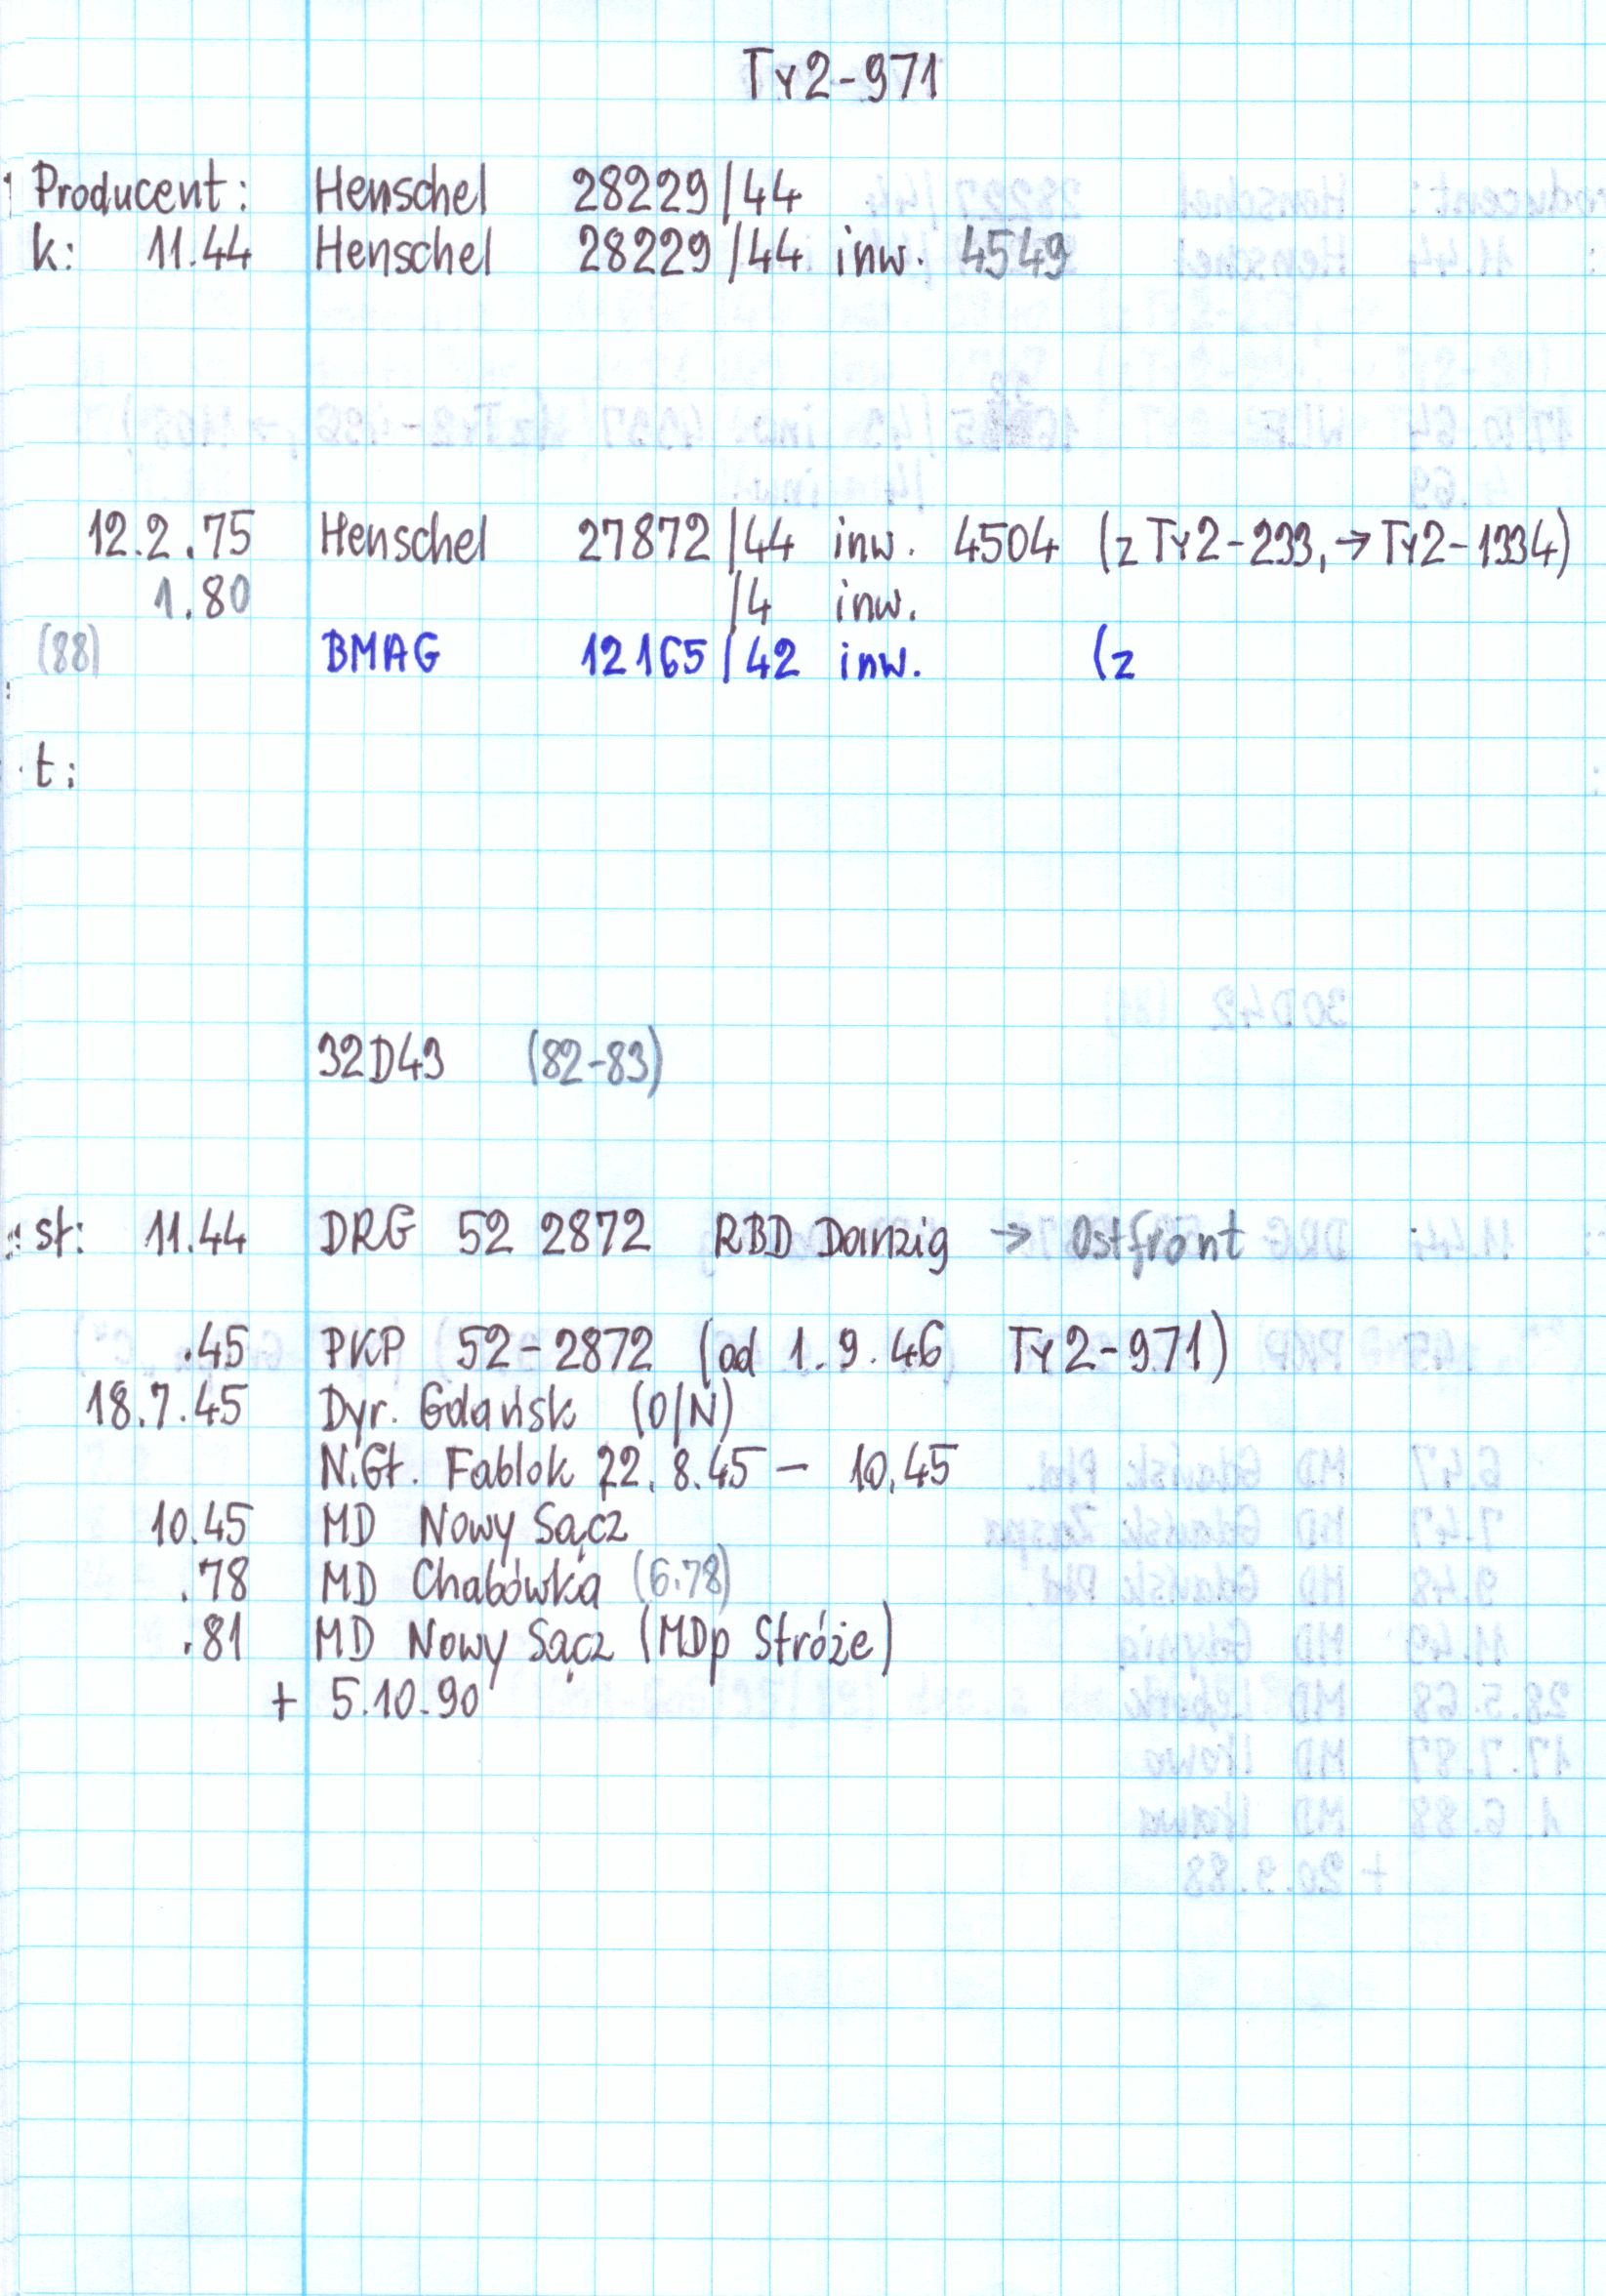 Ty2-971
Producent: Henschel 28229/44
k: 11.44 Henschel 28229/44 inw. 4549
12.2.75 Henschel 27872/44 inw. 4504 (z Ty2-233, → Ty2-1334)
1.80 /4 inw.
(88) BMAG 12165/42 inw. (z
t:
32D43 (82-83)
st: 11.44 DRG 52 2872 RBD Danzig → Ostfront
.45 PKP 52-2872 (od 1.9.46 Ty2-971)
18.7.45 Dyr. Gdańsk (O/N)
N.Gł. Fablok 22.8.45 - 10.45
10.45 MD Nowy Sącz
.78 MD Chabówka (6.78)
.81 MD Nowy Sącz (MDp Stróże)
+ 5.10.90